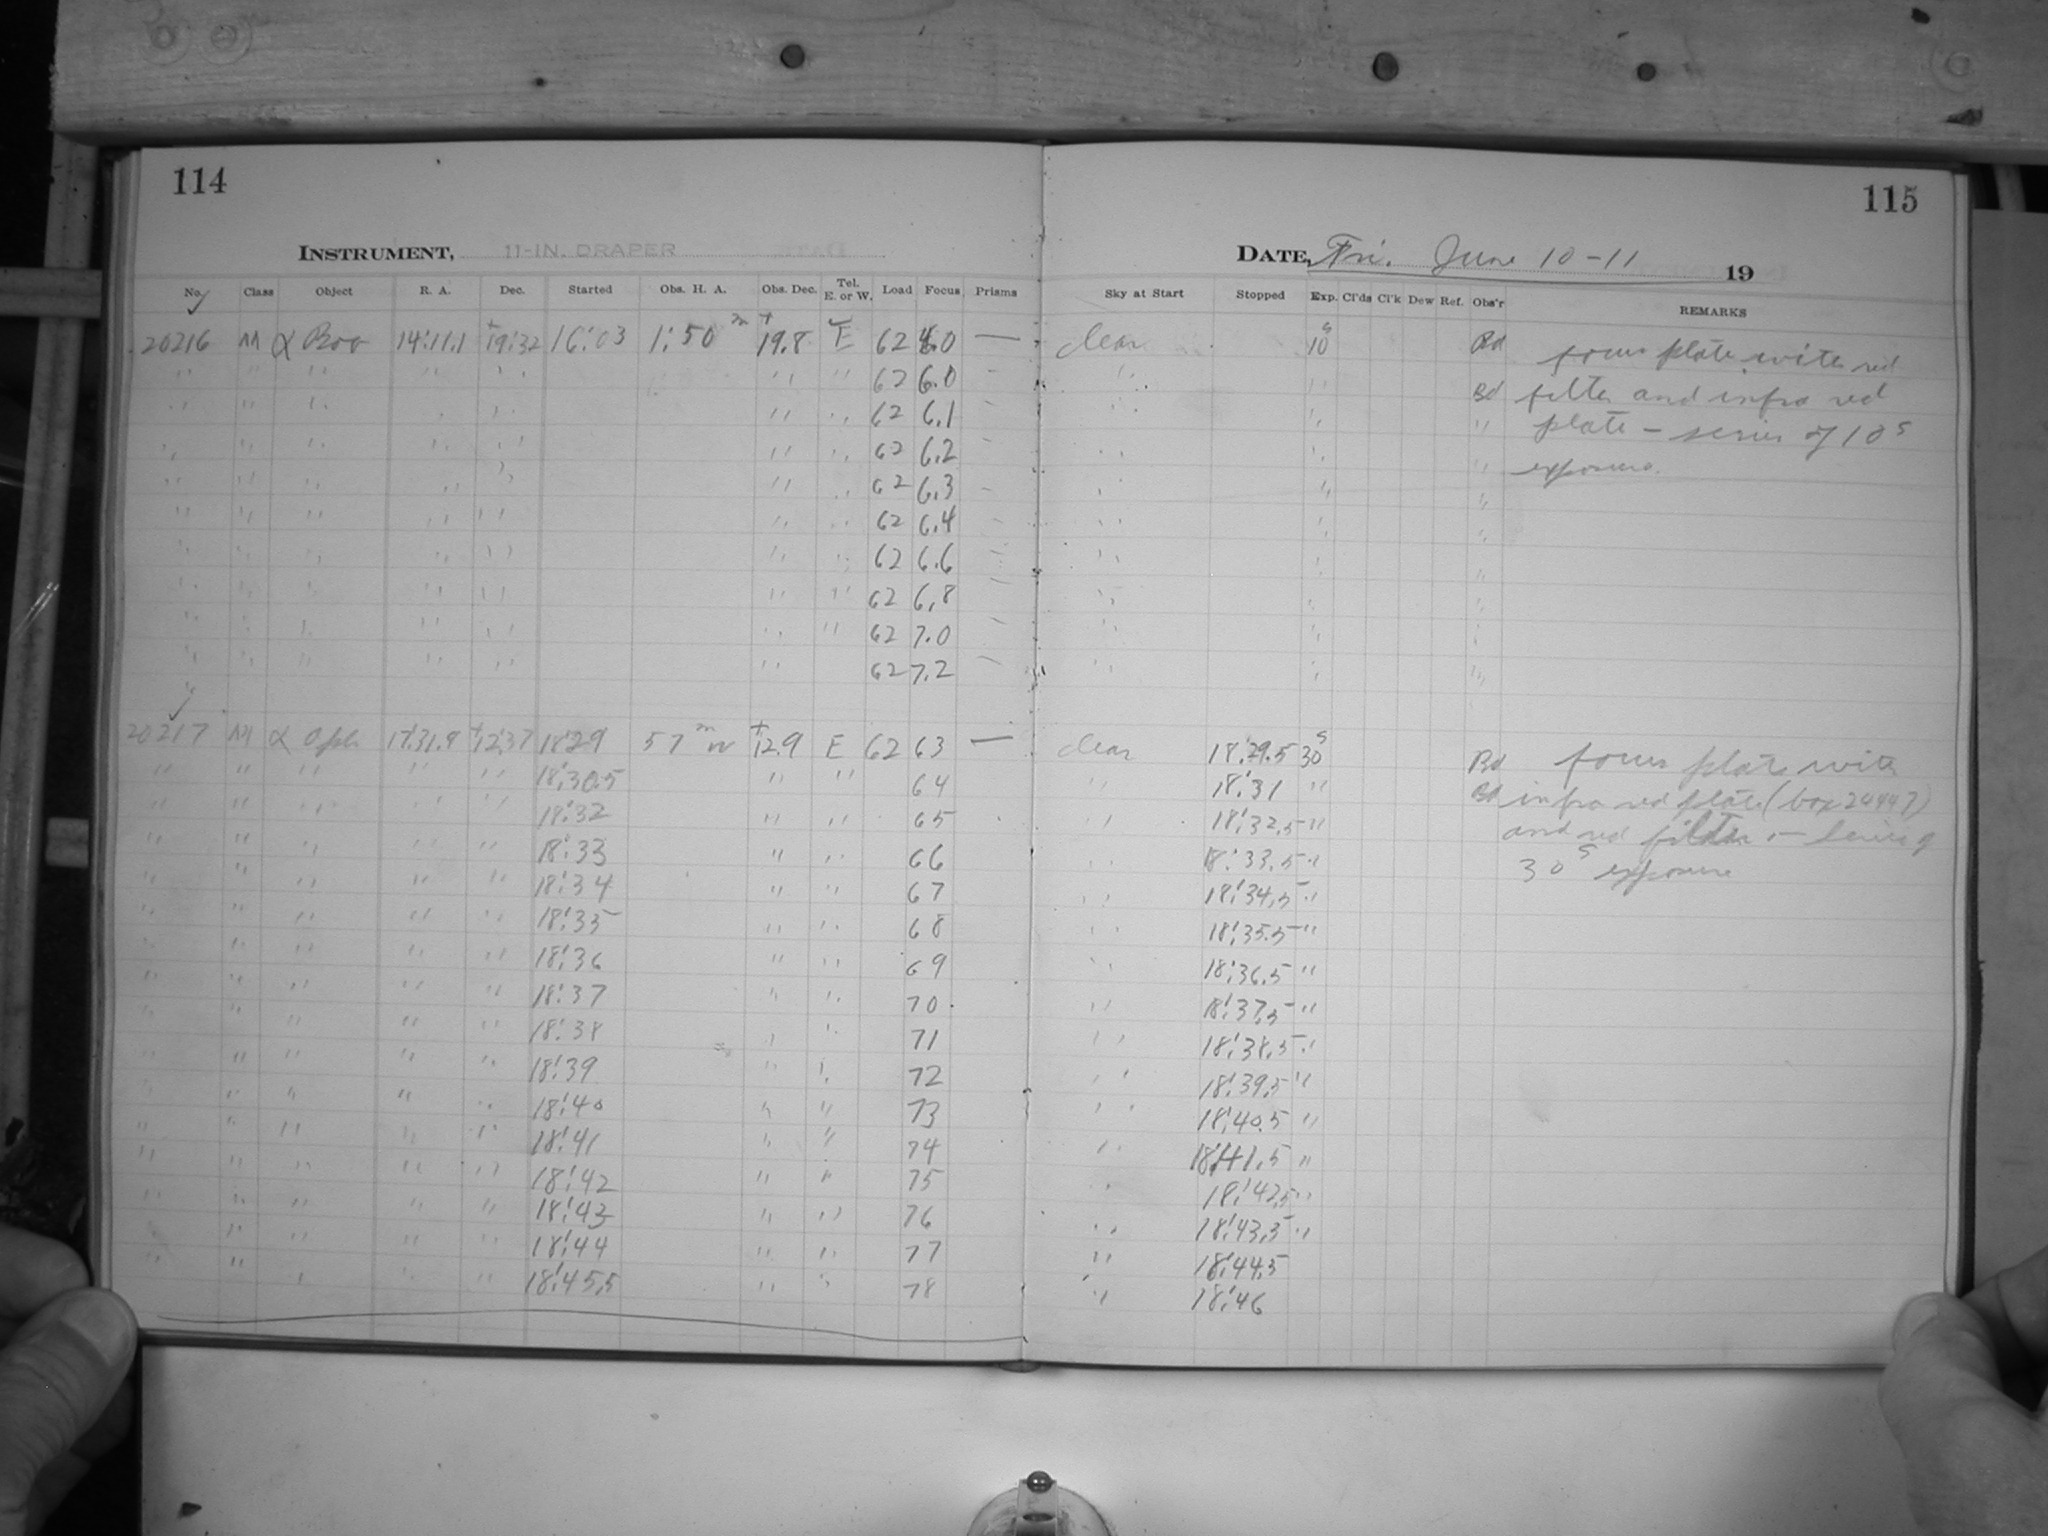 114
115
INSTRUMENT, 11-IN. DRAPER
DATE, Fri. June 10-11 19
No. Class Object R. A. Dec. Started Obs. H. A. Obs. Dec. Tel. E. or W. Load Focus Prisms Sky at Start Stopped Exp. Cl'ds Cl'k Dew Ref. Obs'r REMARKS
20216 M α Boo 14:11.1 +19:32 16:03 1:50 m +19.8 E 62 — clear 10 s Bd focus plate with red
" " " " " " " 62 6.0 – " " Bd filter and infra red
" " " " " " " 62 6.1 – " " " plate – series of 10 s
" " " " " " " 62 6.2 – " " " exposures.
" " " " " " " 62 6.3 – " " "
" " " " " " " 62 6.4 – " " "
" " " " " " " 62 6.6 – " " "
" " " " " " " 62 6.8 – " " "
" " " " " " " 62 7.0 – " " "
" " " " " " 62 7.2 – " " "
20217 M α Oph 17:31.9 +12:37 18:29 57 m W +12.9 E 62 63 — clear 18:29.5 30 s Bd focus plate with
" " " " " 18:30.5 " " 64 " 18:31 " Bd infra red plate (box 24447)
" " " " " 18:32 " " 65 " 18:32.5 " and red filter – series of
" " " " " 18:33 " " 66 " 18:33.5 " 30 s exposure
" " " " " 18:34 " " 67 " 18:34.5 "
" " " " " 18:35 " " 68 " 18:35.5 "
" " " " " 18:36 " " 69 " 18:36.5 "
" " " " " 18:37 " " 70 " 18:37.5 "
" " " " " 18:38 " " 71 " 18:38.5 "
" " " " " 18:39 " " 72 " 18:39.5 "
" " " " " 18:40 " " 73 " 18:40.5 "
" " " " " 18:41 " " 74 " 18:41.5 "
" " " " " 18:42 " " 75 " 18:42.5 "
" " " " " 18:43 " " 76 " 18:43.5 "
" " " " " 18:44 " " 77 " 18:44.5
" " " " " 18:45.5 " " 78 " 18:46